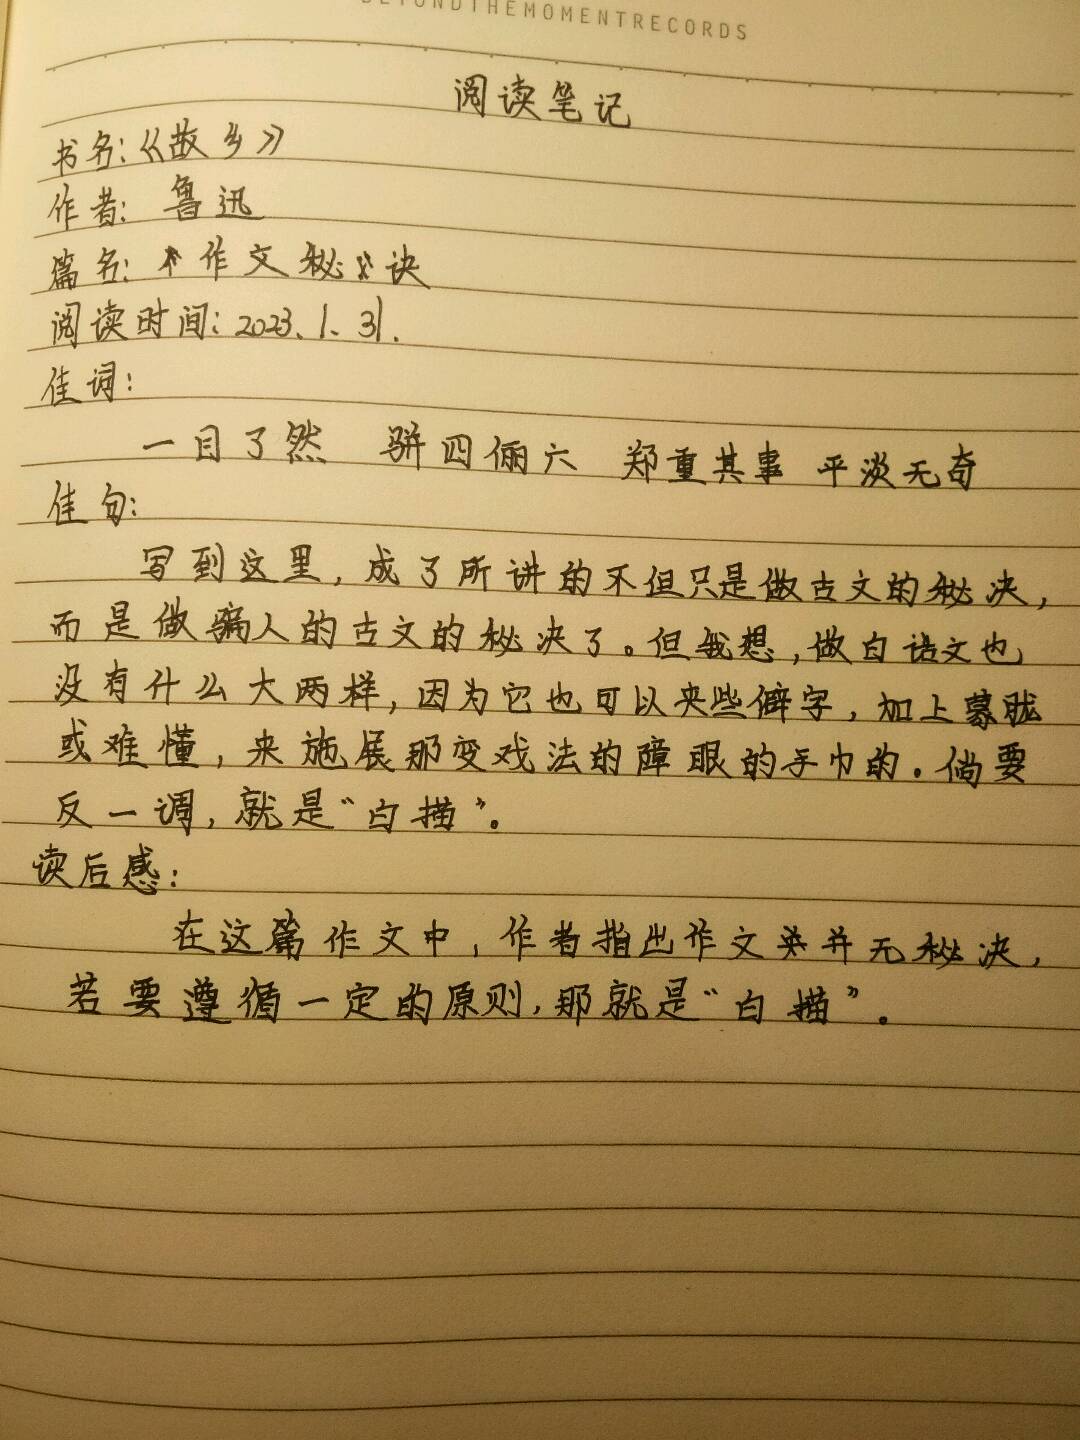 BEYONDTHEMOMENTRECORDS
阅读笔记
书名:《故乡》
作者: 鲁迅
篇名: 作文秘诀
阅读时间: 2023、1、31.
佳词:
一目了然 骈四俪六 郑重其事 平淡无奇
佳句:
写到这里,成了所讲的不但只是做古文的秘决,
而是做骗人的古文的秘决了。但我想,做白话文也
没有什么大两样,因为它也可以夹些僻字,加上蒙胧
或难懂,来施展那变戏法的障眼的手巾的。倘要
反一调,就是“白描”。
读后感:
在这篇作文中,作者指出作文并无秘决,
若要遵循一定的原则,那就是“白描”。